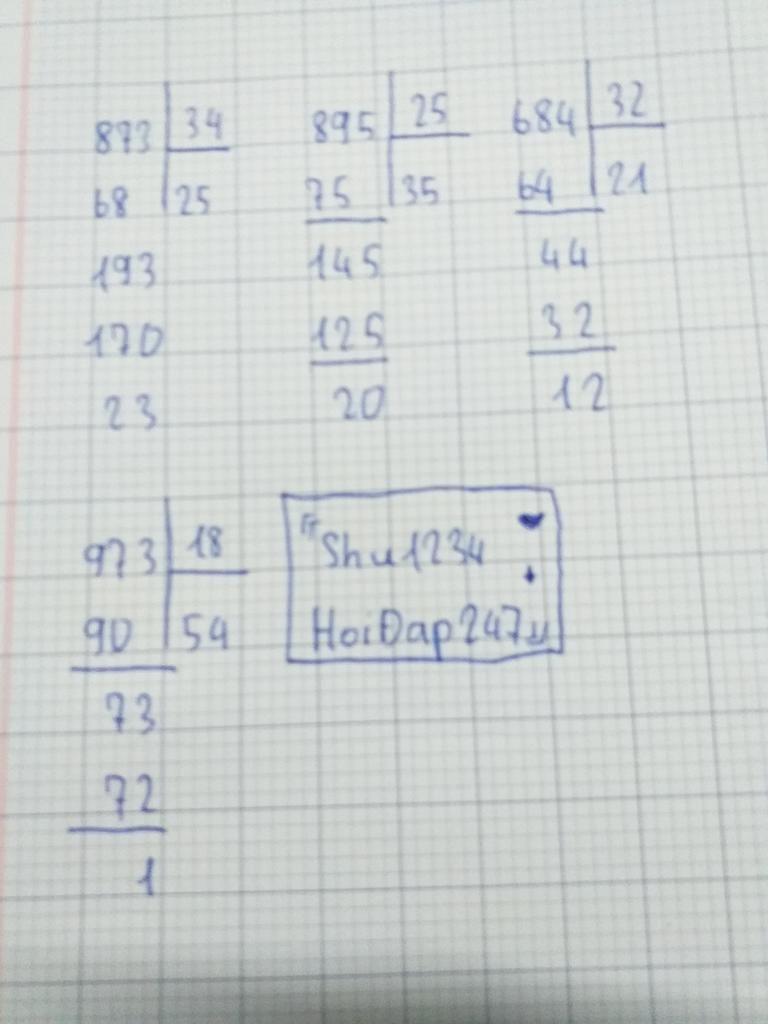 873 34
68 25
193
170
23
895 25
75 35
145
125
20
684 32
64 21
44
32
12
973 18
90 54
73
72
1
"Shu1234
HoiĐap247"